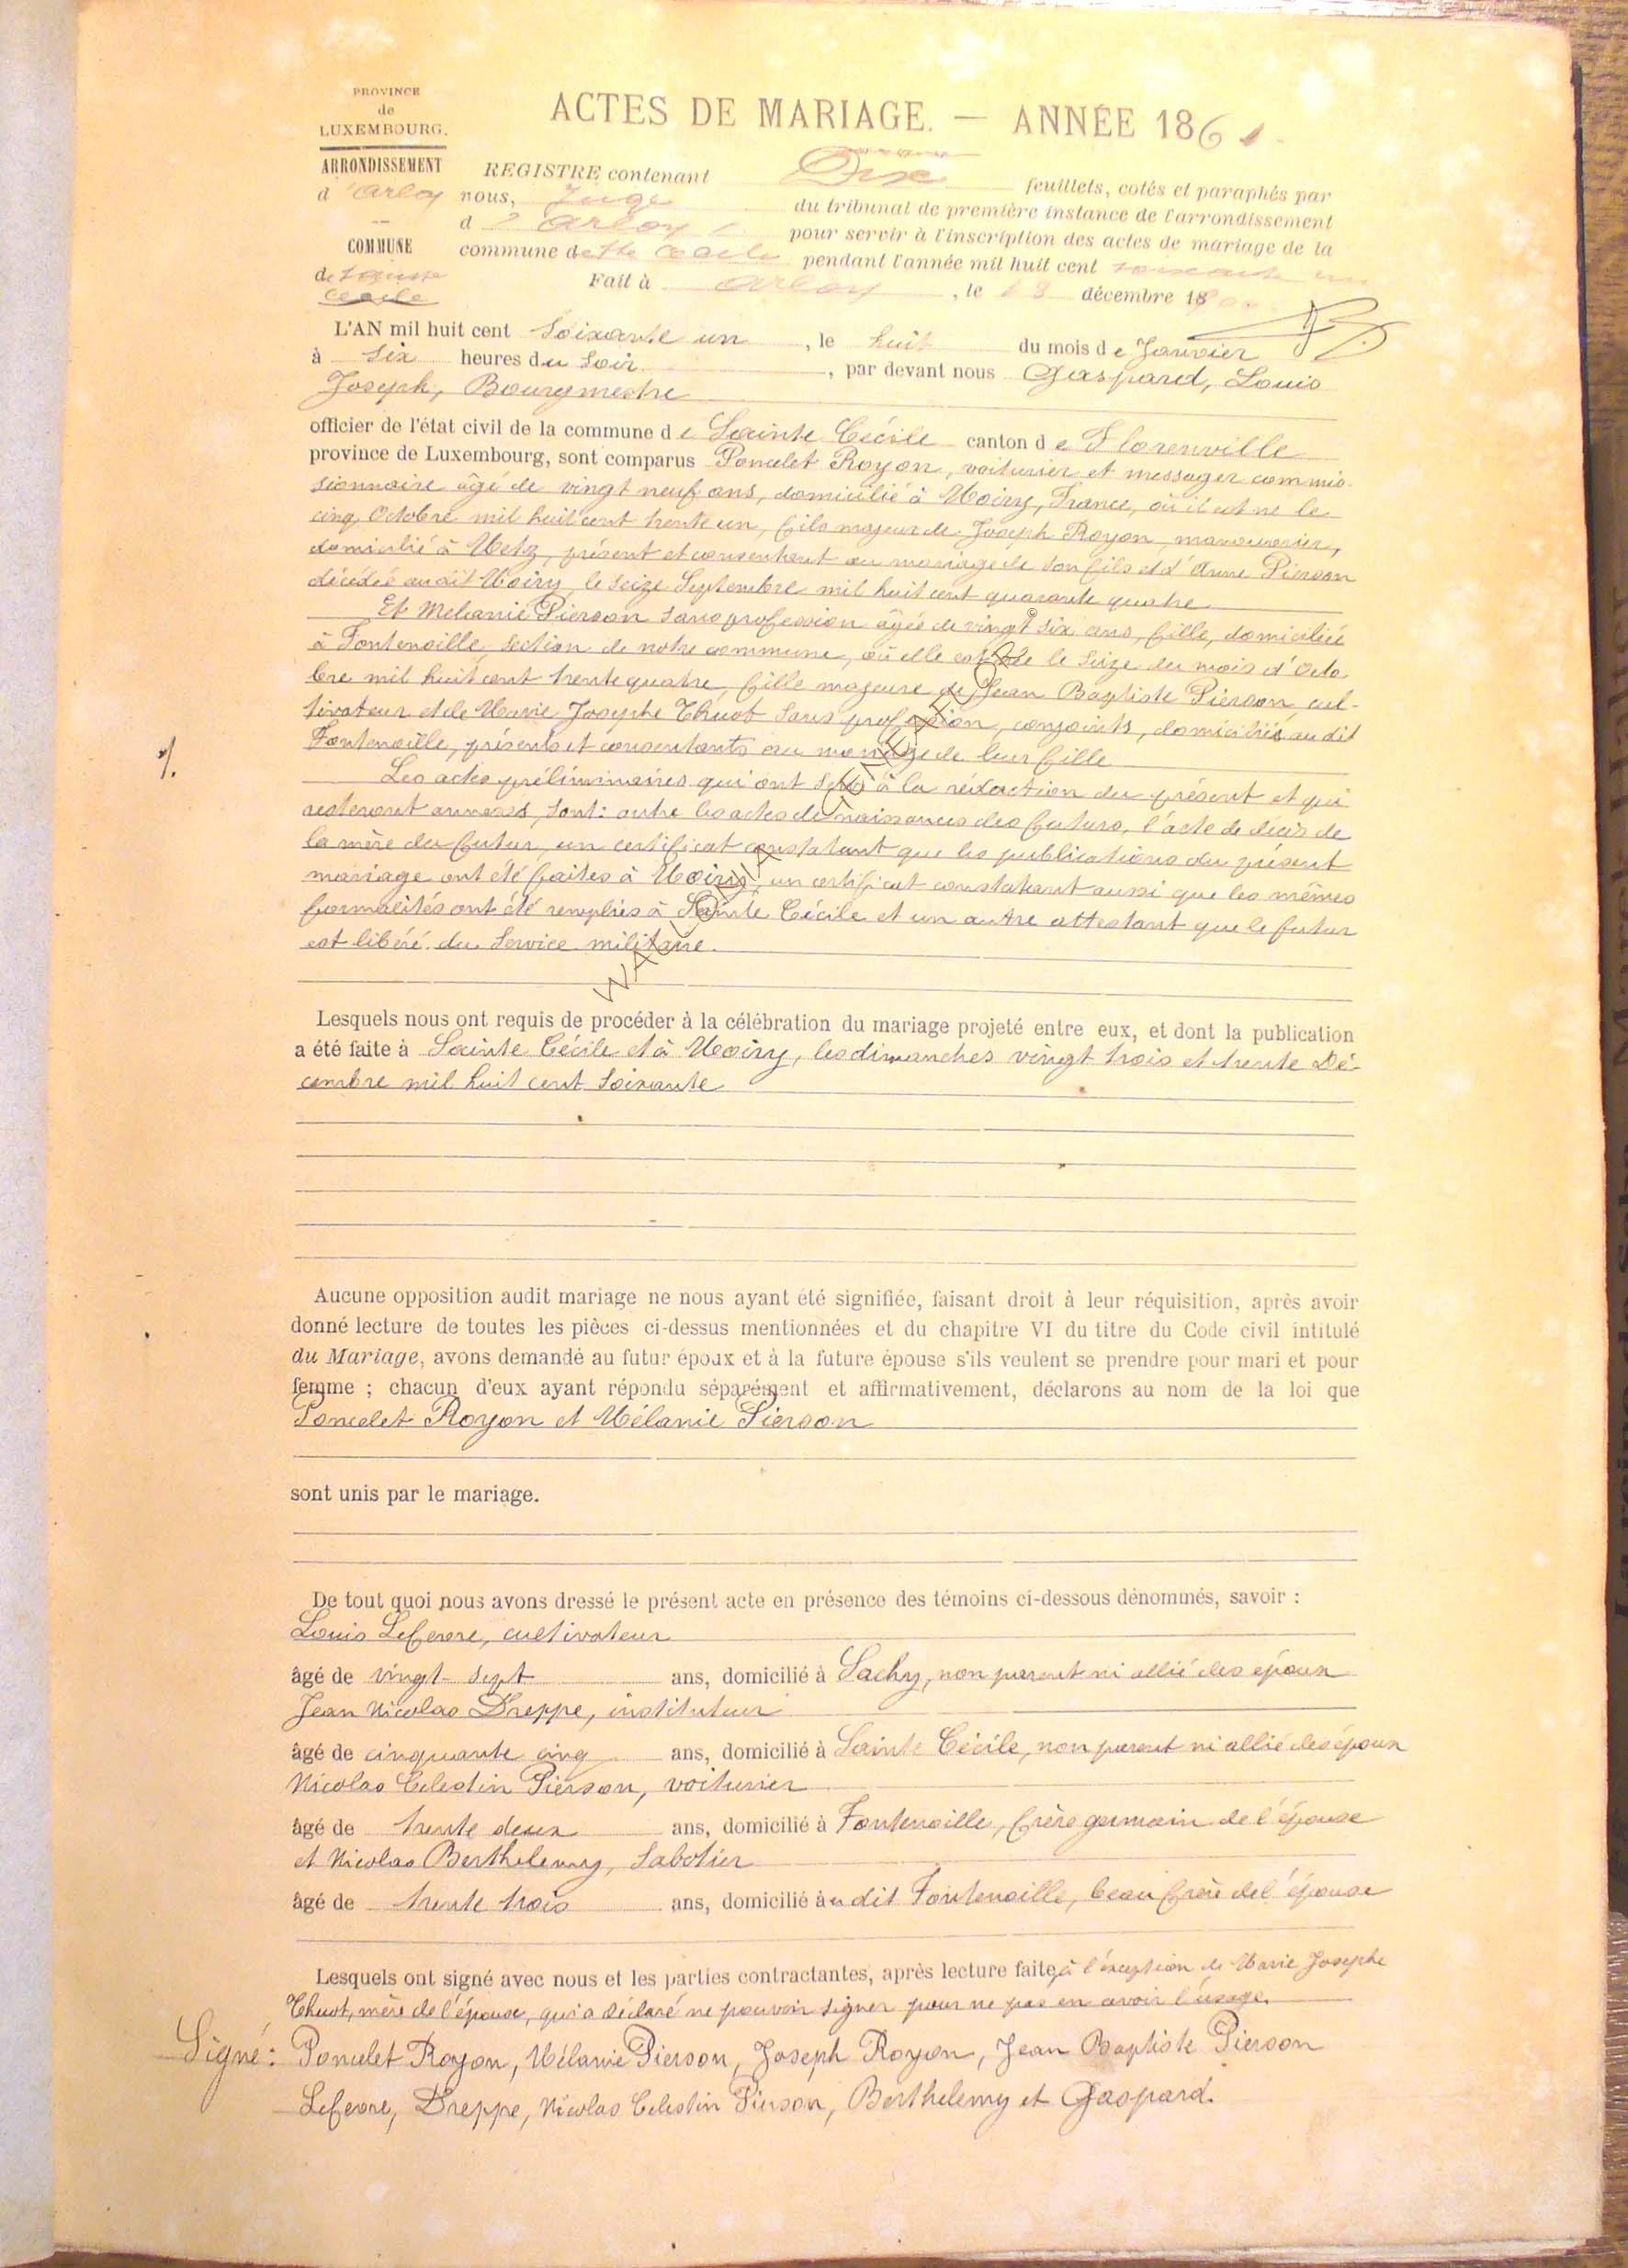 PROVINCE
de
LUXEMBOURG.
ARRONDISSEMENT
d'Arlon
COMMUNE
de Sainte
Cécile
ACTES DE MARIAGE. — ANNÉE 1861
REGISTRE contenant Dix feuillets, cotés et paraphés par
nous, Juge du tribunal de première instance de l'arrondissement
d'Arlon pour servir à l'inscription des actes de mariage de la
commune de Ste Cécile pendant l'année mil huit cent soixante un
Fait à Arlon, le 18 décembre 1860
L'AN mil huit cent Soixante un, le huit du mois de Janvier
à six heures du soir, par devant nous Gaspard, Louis
Joseph, Bourgmestre
officier de l'état civil de la commune de Sainte Cécile canton de Florenville
province de Luxembourg, sont comparus Poncelet Royon, voiturier et messager commis-
sionnaire âgé de vingt neuf ans, domicilié à Moiry, France, où il est né le
cinq Octobre mil huit cent trente un, fils majeur de Joseph Royon, manouvrier,
domicilié à Metz, présent et consentant au mariage de son fils et d'Anne Pierson
décédée audit Moiry le seize Septembre mil huit cent quarante quatre
Et Mélanie Pierson sans profession âgée de vingt six ans, fille, domiciliée
à Fontenoille, section de notre commune, où elle est née le seize du mois d'Octo
bre mil huit cent trente quatre, fille majeure de Jean Baptiste Pierson cul-
tivateur et de Marie Josephe Thuot sans profession, conjoints, domiciliés au dit
Fontenoille, présents et consentants au mariage de leur fille
1.
Les actes préliminaires qui ont servi à la rédaction du présent et qui
resteront annexés, sont: outre les actes de naissances des futurs, l'acte de décès de
la mère du futur, un certificat constatant que les publications du présent
mariage ont été faites à Moiry, un certificat constatant aussi que les mêmes
formalités ont été remplies à Sainte Cécile et un autre attestant que le futur
est libéré du service militaire.
Lesquels nous ont requis de procéder à la célébration du mariage projeté entre eux, et dont la publication
a été faite à Sainte Cécile et à Moiry, les dimanches vingt trois et trente Dé-
cembre mil huit cent soixante
Aucune opposition audit mariage ne nous ayant été signifiée, faisant droit à leur réquisition, après avoir
donné lecture de toutes les pièces ci-dessus mentionnées et du chapitre VI du titre du Code civil intitulé
du Mariage, avons demandé au futur époux et à la future épouse s'ils veulent se prendre pour mari et pour
femme ; chacun d'eux ayant répondu séparément et affirmativement, déclarons au nom de la loi que
Poncelet Royon et Mélanie Pierson
sont unis par le mariage.
De tout quoi nous avons dressé le présent acte en présence des témoins ci-dessous dénommés, savoir :
Louis Lefevre, cultivateur
âgé de vingt-sept ans, domicilié à Sachy, non parent ni allié des époux
Jean Nicolas Dreppe, instituteur
âgé de cinquante cinq ans, domicilié à Sainte Cécile, non parent ni allié des époux
Nicolas Celestin Pierson, voiturier
âgé de trente deux ans, domicilié à Fontenoille, frère germain de l'épouse
et Nicolas Berthelemy, Sabotier
âgé de trente trois ans, domicilié au dit Fontenoille, beau frère de l'épouse
Lesquels ont signé avec nous et les parties contractantes, après lecture faite, à l'exception de Marie Josephe
Thuot, mère de l'épouse, qui a déclaré ne pouvoir signer pour ne pas en avoir l'usage.
Signé: Poncelet Royon, Mélanie Pierson, Joseph Royon, Jean Baptiste Pierson
Lefevre, Dreppe, Nicolas Celestin Pierson, Berthelemy et Gaspard.